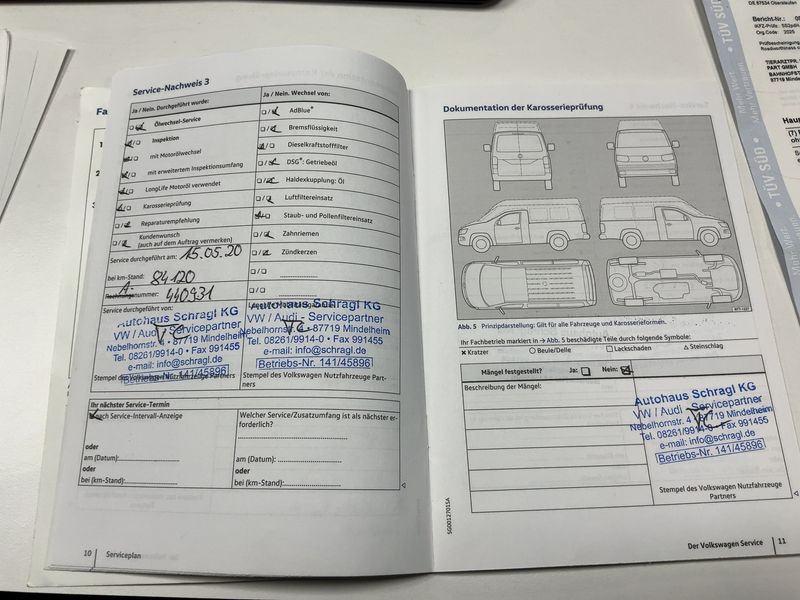 Service-Nachweis 3
Ja / Nein. Durchgeführt wurde:
Ölwechsel-Service
Inspektion
mit Motorölwechsel
mit erweitertem Inspektionsumfang
LongLife Motoröl verwendet
Karosserieprüfung
Reparaturempfehlung
Kundenwunsch
(auch auf dem Auftrag vermerken)
Service durchgeführt am: 15.05.20
bei km-Stand: 84120
A-
Rechnungsnummer: 440931
Service durchgeführt von:
Autohaus Schragl KG
VW / Audi - Servicepartner
Nebelhornstr. 4 • 87719 Mindelheim
Tel. 08261/9914-0 • Fax 991455
e-mail: info@schragl.de
Betriebs-Nr. 141/45896
Stempel des Volkswagen Nutzfahrzeuge Partners
Ja / Nein. Wechsel von:
AdBlue®
Bremsflüssigkeit
Dieselkraftstofffilter
DSG®: Getriebeöl
Haldexkupplung: Öl
Luftfiltereinsatz
Staub- und Pollenfiltereinsatz
Zahnriemen
Zündkerzen
Autohaus Schragl KG
VW / Audi - Servicepartner
Nebelhornstr. 4 • 87719 Mindelheim
Tel. 08261/9914-0 • Fax 991455
e-mail: info@schragl.de
Betriebs-Nr. 141/45896
Stempel des Volkswagen Nutzfahrzeuge Part-
ners
Ihr nächster Service-Termin
nach Service-Intervall-Anzeige
oder
am (Datum):
oder
bei (km-Stand):
Welcher Service/Zusatzumfang ist als nächster er-
forderlich?
am (Datum):
oder
bei (km-Stand):
10 Serviceplan
Dokumentation der Karosserieprüfung
Abb. 5 Prinzipdarstellung: Gilt für alle Fahrzeuge und Karosserieformen.
Ihr Fachbetrieb markiert in → Abb. 5 beschädigte Teile durch folgende Symbole:
Kratzer Beule/Delle Lackschaden Steinschlag
Mängel festgestellt? Ja: Nein:
Beschreibung der Mängel:
Autohaus Schragl KG
VW / Audi - Servicepartner
Nebelhornstr. 4 • 87719 Mindelheim
Tel. 08261/9914-0 • Fax 991455
e-mail: info@schragl.de
Betriebs-Nr. 141/45896
Stempel des Volkswagen Nutzfahrzeuge
Partners
SG00127015A
Der Volkswagen Service 11
TÜV SÜD
Mehr Wert.
Mehr Vertrauen.
TÜV SÜD
DE 87534 Oberstaufen
Bericht-Nr.:
Org.Code: 2025
Prüfbescheinigung
TIERARZTPR.
PART GMBH
BAHNHOFST
87719 Mindel